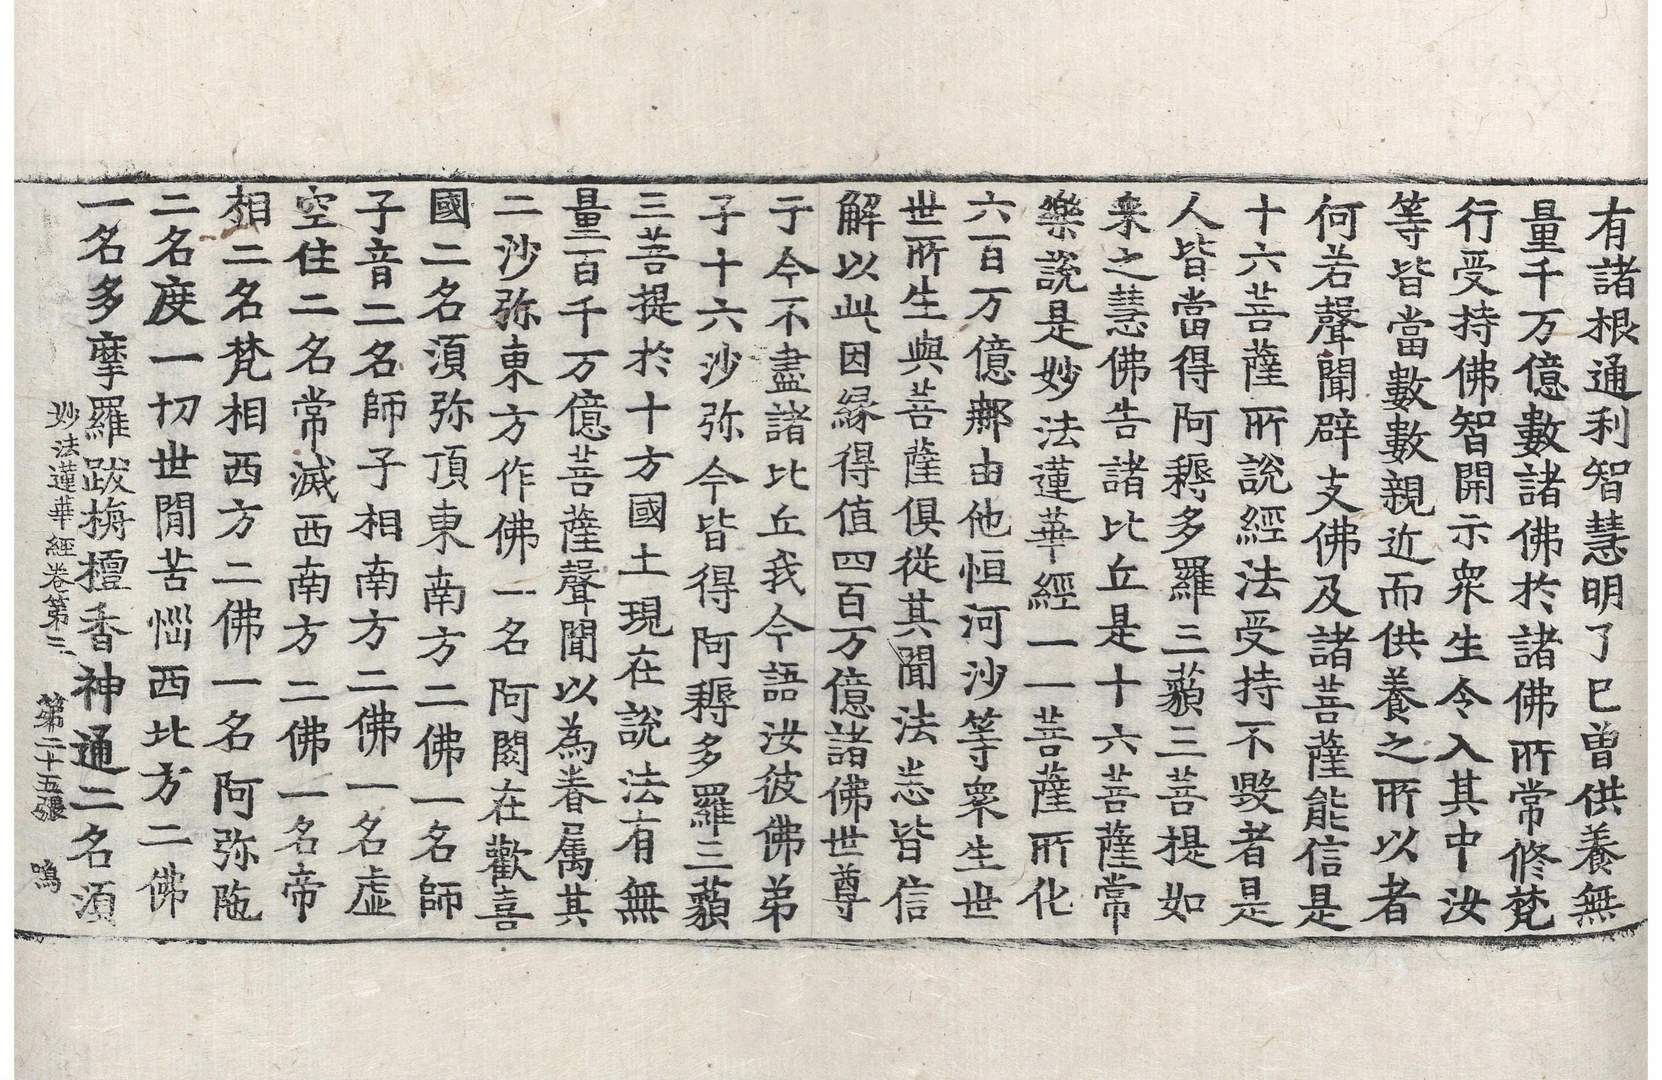 有諸根通利智慧明了已曾供養無
量千万億數諸佛於諸佛所常修梵
行受持佛智開示衆生令入其中汝
等皆當數數親近而供養之所以者
何若聲聞辟支佛及諸菩薩能信是
十六菩薩所說經法受持不毀者是
人皆當得阿耨多羅三藐三菩提如
來之慧佛告諸比丘是十六菩薩常
樂說是妙法蓮華經一一菩薩所化
六百万億那由他恒河沙等衆生世
世所生與菩薩俱從其聞法悉皆信
解以此因緣得值四百万億諸佛世尊
于今不盡諸比丘我今語汝彼佛弟
子十六沙弥今皆得阿耨多羅三藐
三菩提於十方國土現在說法有無
量百千万億菩薩聲聞以為眷属其
二沙弥東方作佛一名阿閦在歡喜
國二名須弥頂東南方二佛一名師
子音二名師子相南方二佛一名虛
空住二名常滅西南方二佛一名帝
相二名梵相西方二佛一名阿弥陁
二名度一切世閒苦惱西北方二佛
一名多摩羅跋栴檀香神通二名須
妙法蓮華經卷第三 第二十五張 鳴